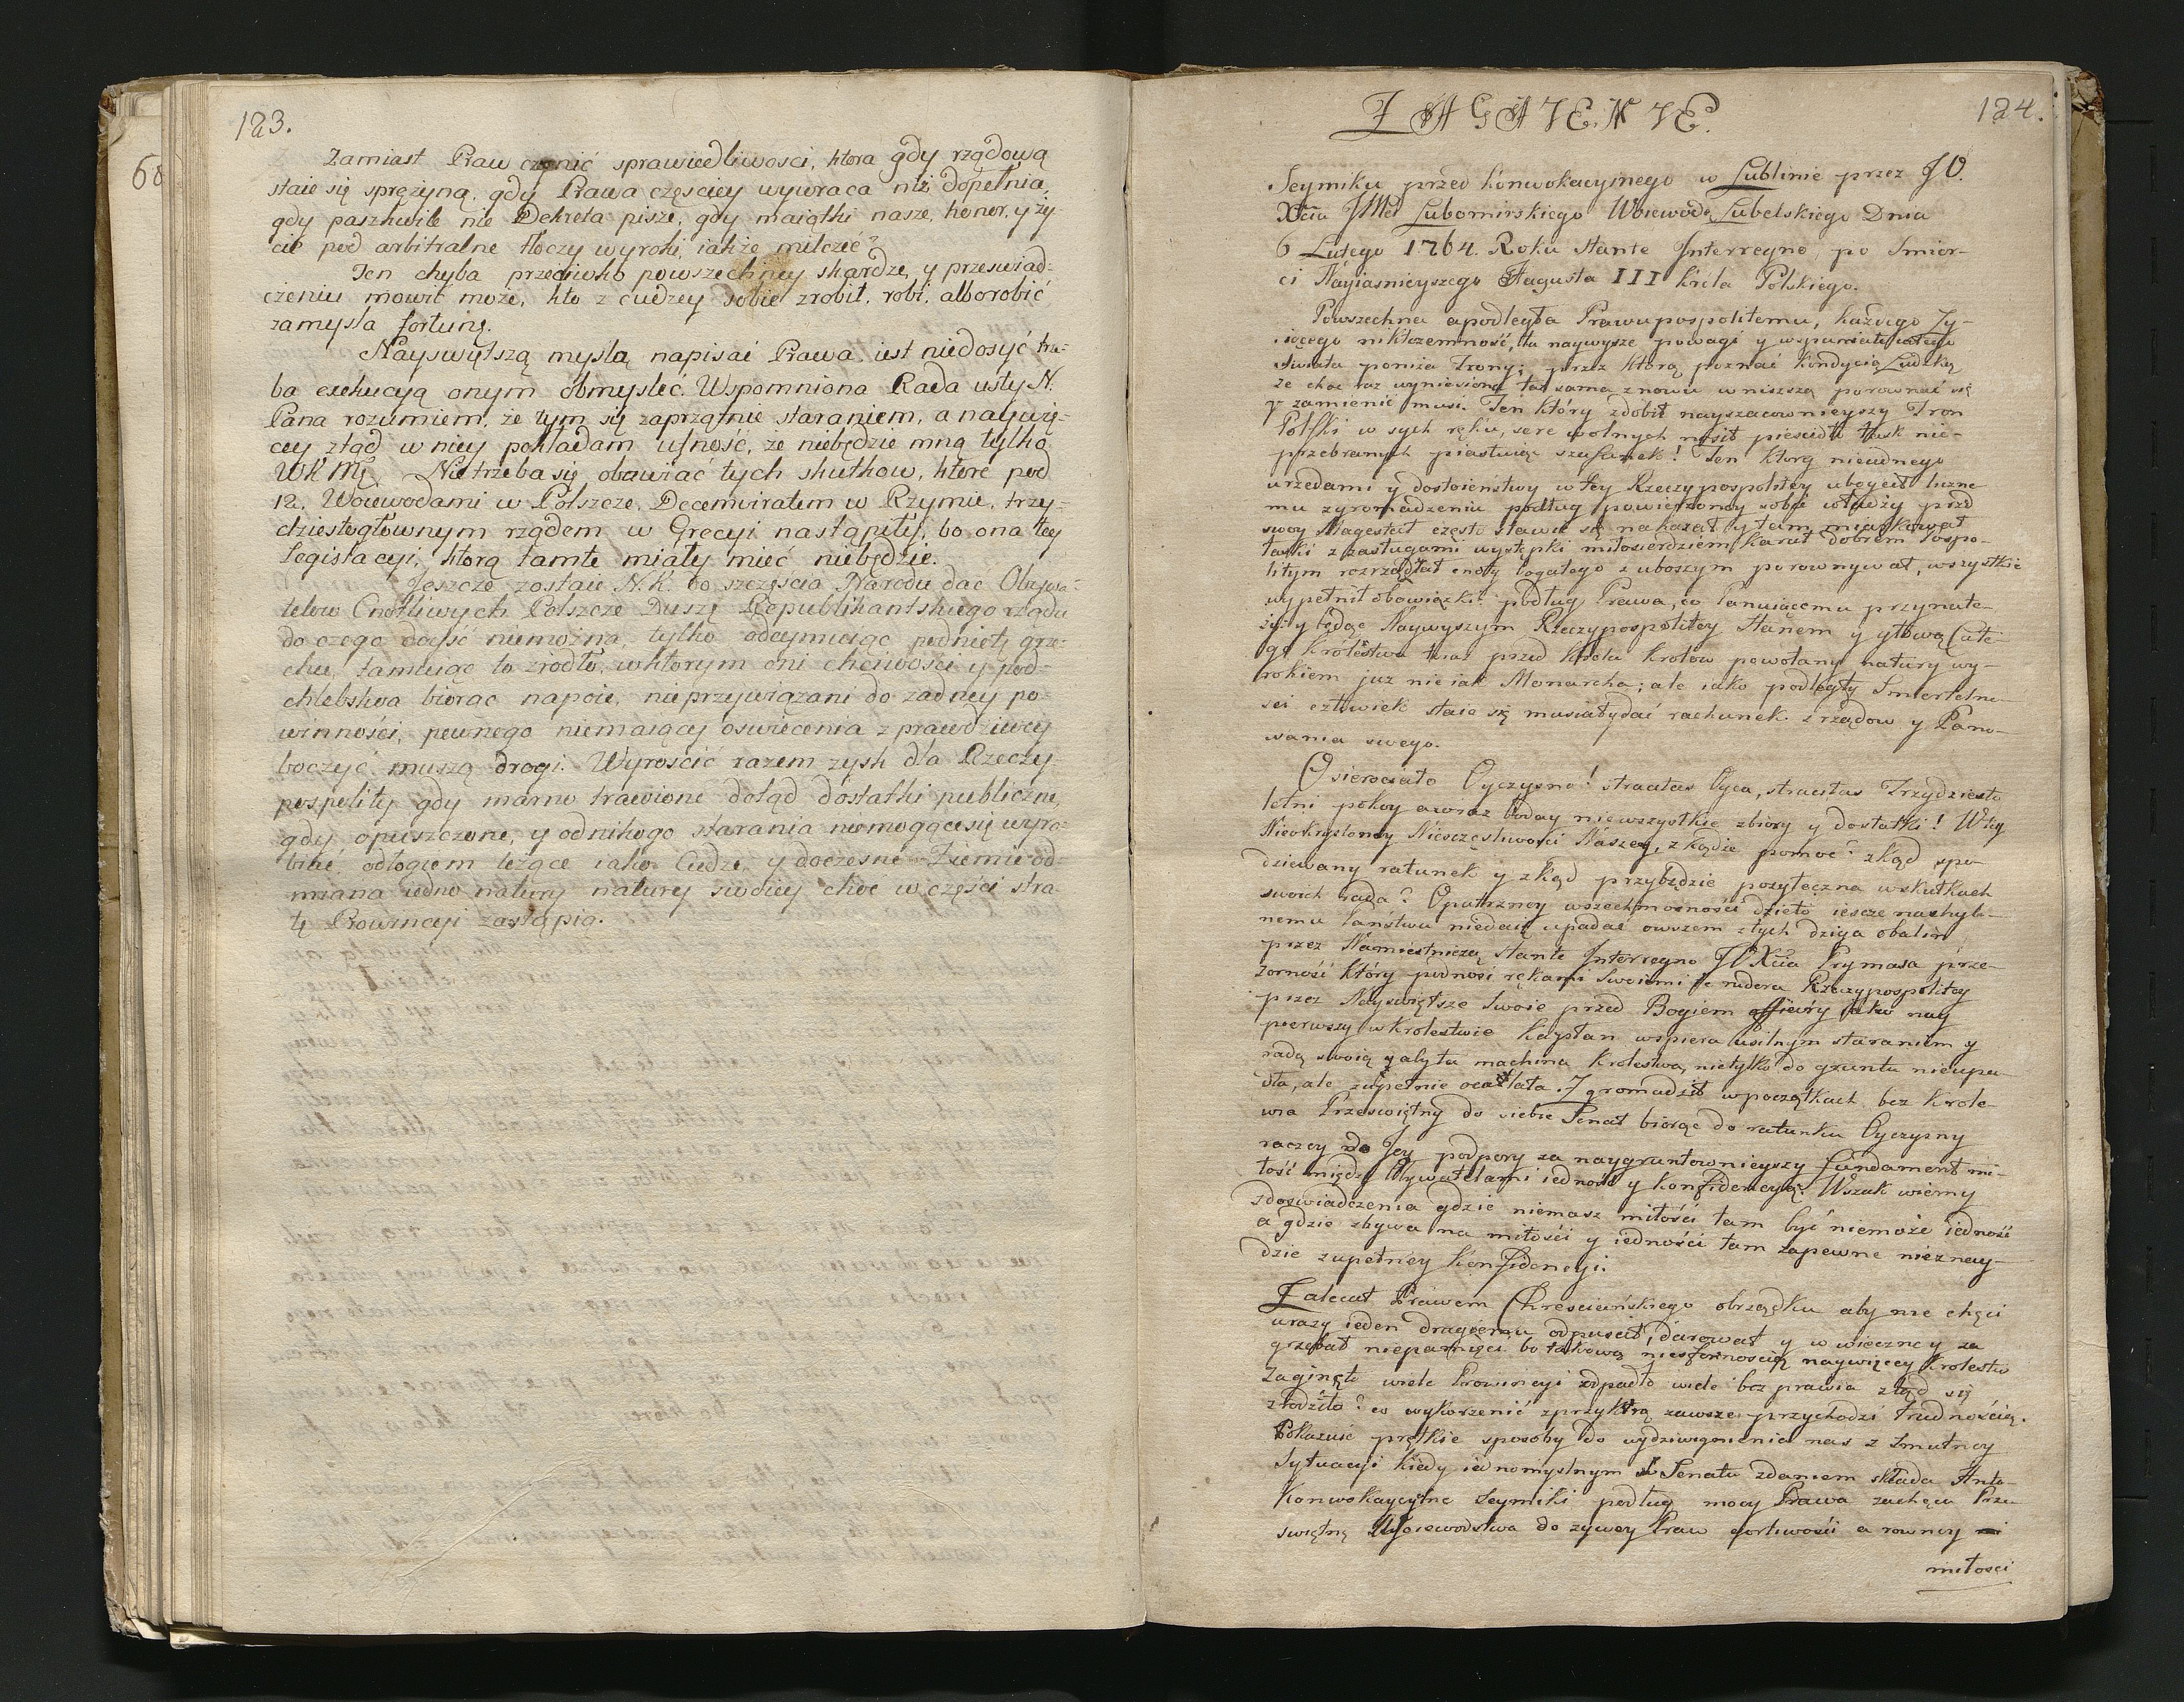 123.
Zamiast Praw czynić sprawiedliwosci, ktora gdy rządową
staie się sprężyną, gdy Prawa częsciey wywraca niż dopełnia,
gdy paszkwile nie Dekreta pisze, gdy maiątki nasze, honor, y ży-
cie pod arbitralne tłoczy wyroki, iakże milczeć?
Ten chyba przeciwko powszechney skardze, y przeswiad-
czeniu mowić może, kto z cudzey sobie zrobił, robi, albo robić
zamysla fortunę.
Nayswiętszą myslą napisać Prawa, iest niedosyć trze-
ba exekucyą onym obmysleć. Wspomniona Rada usty N.
Pana rozumiem, że tym się zaprzątnie staraniem, a naywię-
cey ztąd w niey pokładam ufność, że niebędzie mną tylko
WKMę. Nie trzeba się obawiać tych skutkow, ktore pod
12. Woiewodami w Polszcze, Decemviratem w Rzymie, trzy-
dziestogłownym rządem w Grecyi nastąpiły, bo ona tey
Legislacyi, ktorą tamte miały mieć niebędzie.
Jeszcze zostaie N. K. do szczęscia Narodu dać Obywa-
telow Cnotliwych Polszcze Duszę Republikantskiego rządu
do czego doysć niemożna, tylko odeymuiąc podnietę grze-
chu, tamuiąc to zrodło, w ktorym oni chciwości y pod-
chlebstwa biorąc napoie, nieprzywiązani do żadney po-
winności, pewnego niemaiący oswiecenia z prawdziwey
boczyć muszą drogi. Wyrościć razem zysk dla Rzeczy-
pospolitey gdy marno trawione dotąd dostatki publiczne,
gdy opuszczone, y od nikogo starania niemogące się wyro-
bilić odłogiem leżące iako Cudze, y doczesne Ziemie od-
miana iedno natury natury swoiey choć w części stra-
tę Prowincyi zastąpią.
124.
ZAGAIENIE.
Seymiku przed konwokacyinego w Lublinie przez JO.
Xcia JMci Lubomirskiego Woiewodę Lubelskiego Dnia
6 Lutego 1764. Roku stante Interregno, po Smier-
ci Nayiasnieyszego Augusta III Krola Polskiego.
Powszechna a podległa Prawu pospolitemu, każdego Ży-
iącego nikczemność, ta naywyższe powagi y wspaniałe całego
Swiata poniża Trony; przez którą poznać kondycią Ludzką
że choć raz wyniesiona taż sama znowu w niższą porownać się
y zamienić musi. Ten który zdobił nayszacownieyszy Tron
Polski w sych ręku, serc wolnych nosił pieścidło łask nie-
przebranych piastuiąc szafunek! Ten który nieiednego
urzędami y dostoieństwy w tey Rzeczypospolitey ubogacił liczne
mu zgromadzeniu podług powierzoney sobie władzy przed
swoy Magestat często stawić się nakazał y tam miarkował
łaski z zasługami występki miłosierdziem karał dobrem pospo-
litym rozrządzał cnoty bogatego z uboszym porownywał, wszystkie
wypełnił obowiązki podług Prawa, co Panuiącemu przynale-
ży: y będąc Naywyższym Rzeczypospolitey Stanem y głową Całe-
go królestwa teraz przed Krola krolow powołany natury wy-
rokiem już nie iak Monarcha; ale iako podległy Smiertelno-
sci człowiek staie się musiał dać rachunek z rządow y Pano-
wania swego.
Osierociała Oyczyzno! straciłaś Oyca, straciłaś Trzydziesto
letni pokoy a wraz boday niewszystkie zbiory y dostatki! W tey
Nieokrysloney Niesczęsliwości Naszey, z kądże pomoc? zkąd spo-
dziewany ratunek y zkąd przybędzie pożyteczna w skutkach
swoich rada? Opatrzney wszechmocności dzieło ieszcze nachylo-
nemu Państwu niedaią upadać owszem złych dziga obalin
przez Namiestniczą stante Interregno JO Xcia Prymasa prze-
zorność który podnosi rękami swoiemi te rudera Rzeczypospolitey
przez Nayswiętsze swoie przed Bogiem offiary iako nay
pierwszy w krolestwie kapłan wspiera usilnym staraniem y
radą swoią aby ta machina Krolestwa, nietylko do gruntu nieupa-
dła, ale zupełnie ocalała. Zgromadził w początkach bez krole-
wia Przeswiętny do siebie Senat biorąc do ratunku Oyczyzny
raczey do Jey podpory za naygruntownieyszy fundament mi-
łość między Obywatelami iedność y konfidencyą. Wszak wiemy
z doswiadczenia gdzie niemasz miłości tam być niemoże iedność
a gdzie zbywa na miłości y iedności tam zapewne nieznay-
dzie zupełney konfidencyi.
Zalecał Prawem Chrescianskiego obrządku aby nie chęci
urazy ieden drugiemu odpuscił, darował y w wieczney za
grzebał niepamięci bo takową niesfornością naywięcey krolestw
Zaginęło wiele Prowincyi odpadło wiele bez prawia ztąd się
złodziło? co wykorzenić zprzykrą zawsze przychodzi trudnością.
Pokazuie prętkie sposoby do wydzwignienia nas z smutney
Sytuacyi kiedy iednomyslnym Senatu zdaniem składa Ante-
Konwokacyine Seymiki podług mocy Prawa zachęca Prze-
swiętną Woiewodstwa do żywey Praw gorliwości a rowney
miłosci